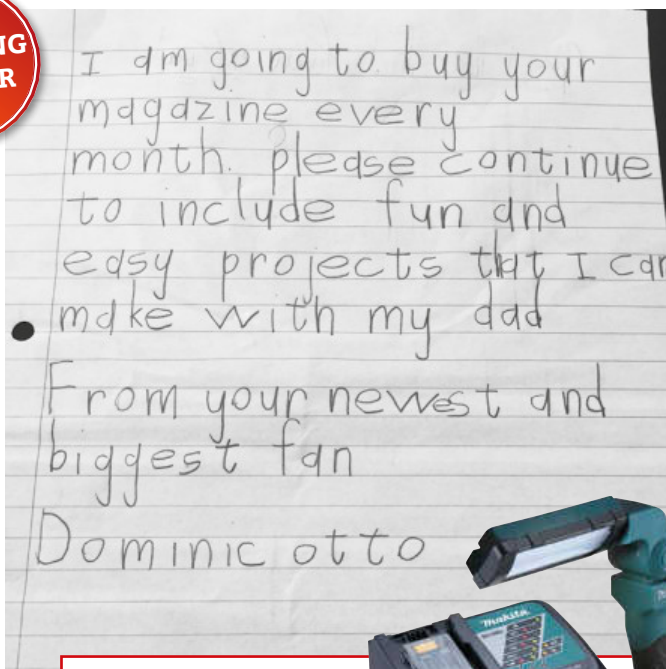 NG
R
I am going to buy your
magazine every
month. please continue
to include fun and
easy projects that I can
make with my dad
From your newest and
biggest fan
Dominic otto
makita